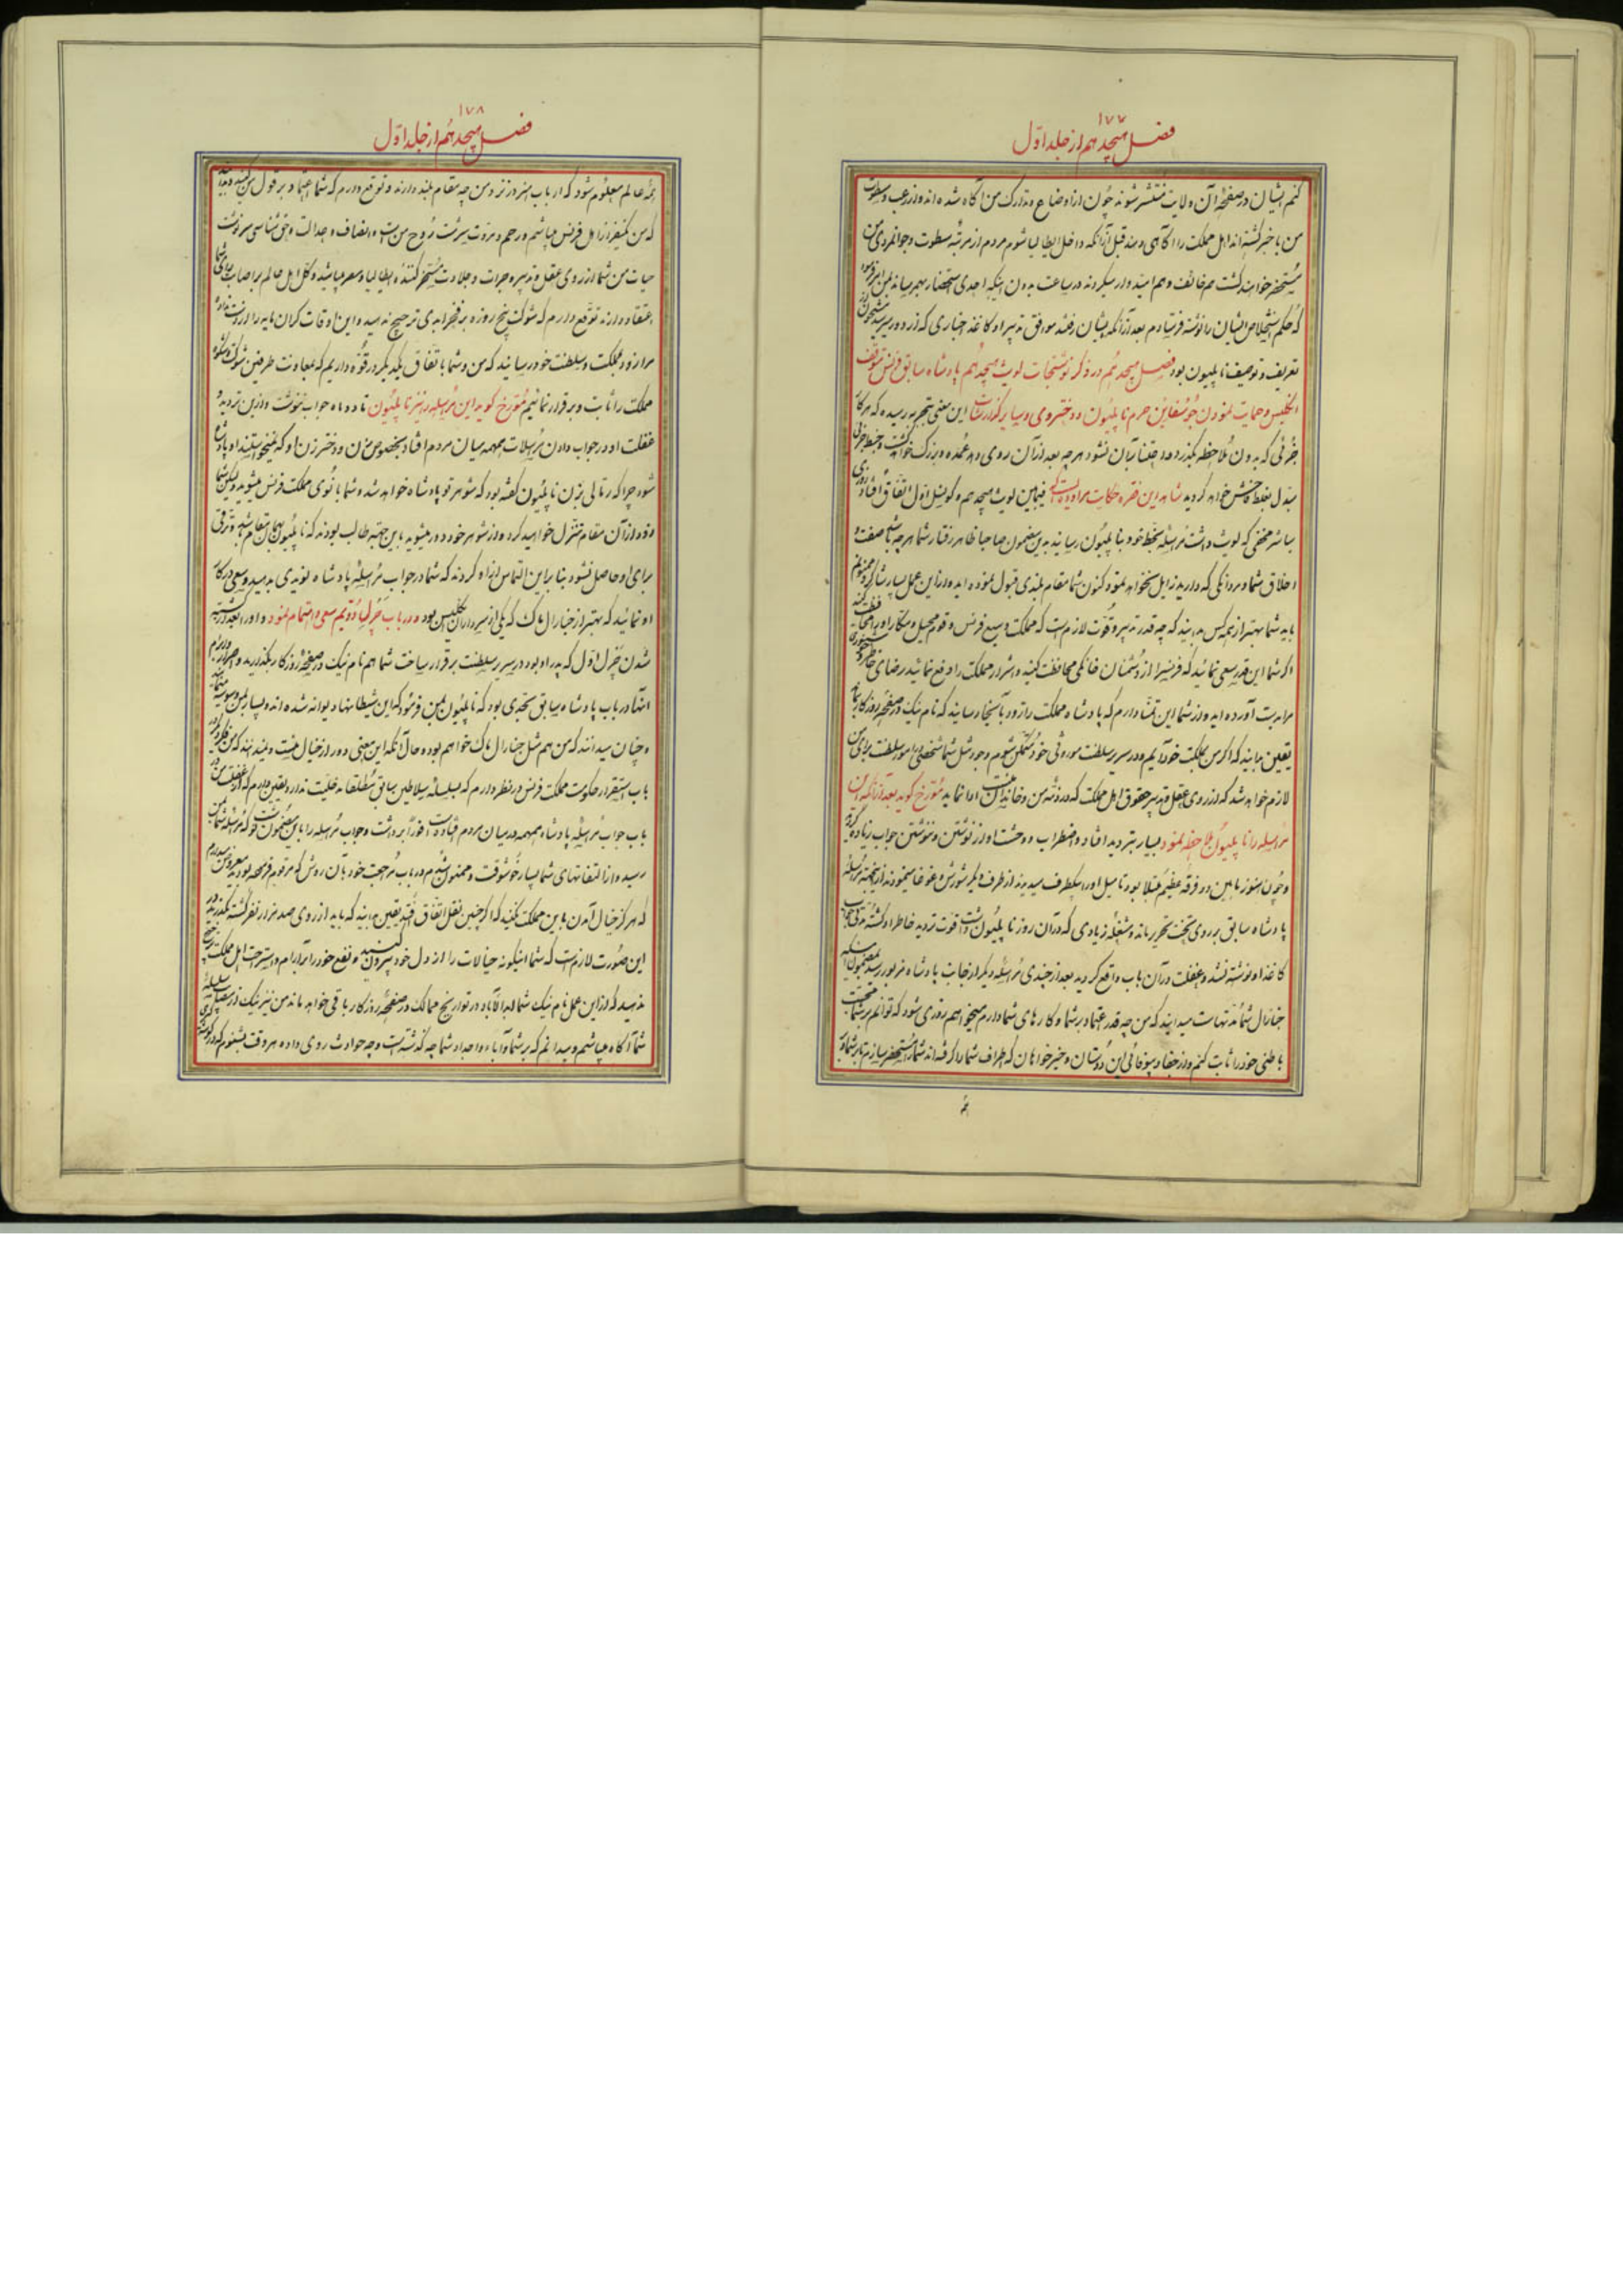 ۱۷۷
فصل هیجدهم از جلد اول
کنم ایشان در صفحهٔ آن ولایت منتشر شوند چون از اوضاع و تدارک من آگاه شده اند و از رعب و سطوت
من با خبر گشته اند اهل مملکت را آگاهی دهند قبل از آنکه داخل ایطالیا شوم مردم از مرتبهٔ سطوت و جوانمردی من
مستحضر خواهند گشت هم خائف و هم امیدوار میگردند در ساعت بدون اینکه احدی استحضار بهم رساند
که حکم استخلاص ایشان را نوشته فرستادم بعد از آنکه ایشان رفتند موافق تدبیر او کاغذ اخباری که از دور میرسید
تعریف و توصیف ناپلیون بود فصل هیجدهم در ذکر نوشتجات لویث هیجدهم پادشاه سابق فرنس
انگلیس و حمایت نمودن جوسفاین حرم ناپلیون و دختر وی و سایر گذارشات این معنی بتجربه رسیده که هر کار
جزئی که بدون ملاحظه بگذرد و اعتنا بآن نشود هر چه بعد از آن روی دهد عمده و بزرگ خواهد گشت
بدل بغلط فاحش خواهد گردید شاهد این فقره حکایت مراوده ایست که فیمابین لویث هیجدهم و کونسل اول اتفاق افتاد
مباشر مخفی که لویث داشت مراسلهٔ بخط خود بناپلیون رسانید بدین مضمون صاحبا ظاهر رفتار شما هر چه باشد صفت و
اخلاق شما و مردانگی که دارید زایل نخواهد نمود کنون شما مقام بلندی قبول نموده اید و از این عمل بسیار شاکر و ممنونم
باید شما بهتر از همه کس بدانید که چه قدر تدبیر و قوت لازم است که مملکت وسیع فرنس و قوم محیل و مکار او را
اگر شما این قدر سعی نمائید که فرنس را از دشمنان خانگی محافظت کنید و اشرار مملکت را دفع نمائید رضای خاطر
مرا بدست آورده اید و از شما این تمنا دارم که پادشاه مملکت را زود بآنجا رسانید که نام نیک در صفحهٔ روزگار
یقین بدانید که اگر من بمملکت خود آیم و در سریر سلطنت موروثی خود متمکن شوم وجود مثل شما شخصی امور سلطنت برای من
لازم خواهد شد که از روی عقل و تدبیر حقوق اهل مملکت که در ذمه من و خاندان منست ادا نماید مورخ گوید بعد از آنکه این
مراسله را ناپلیون ملاحظه نمود بسیار بتردید افتاد و اضطراب و وحشت او از نوشتن و ننوشتن جواب زیاده گردید
و چون هنوز مابین دو فرقه عظیم مبتلا بود تا میل او را بیکطرف میدیدند از طرف دیگر شورش و غوغا مینمودند از اینجهت مراسلهٔ
پادشاه سابق بر روی تخت تحریر ماند و مشغلهٔ زیادی که در آن روز ناپلیون داشت و قوت تردید خاطر او گشته مدتی
کاغذ او نوشته نشد و غفلت در آن باب واقع گردید بعد از چندی مراسلهٔ دیگر از جانب پادشاه مزبور رسید بمضمون اینکه
جنارال شما مدتهاست میدانید که من چه قدر اعتماد بر شما و کارهای شما دارم میخواهم روزی شود که توانم بر شما محبت
باطنی خود را ثابت کنم و از جفا و بیوفائی این دوستان و خیرخواهان که اطراف شما را گرفته اند شما را مستحضر سازم تا بر شما و بر
همهٔ
۱۷۸
فصل هیجدهم از جلد اول
همهٔ عالم معلوم شود که ارباب هنر در نزد من چه مقام بلند دارند و توقع دارم که شما اعتماد بر قول من کنید و بدانید
که من یکنفر از اهل فرنس میباشم و رحم و مروت سرشت روح من است و انصاف و عدالت و حق شناسی سرنوشت
حیات من شما از روی عقل و تدبیر و جرات و جلادت مسخر کنندهٔ ایطالیا و مصر میباشید و کل اهل عالم بر اصابت رای شما
اعتقاد دارند توقع دارم که شوکت پنج روزه بر فخر ابدی ترجیح ندهید و این اوقات گران مایه را از دست نداده
مرا زود بمملکت و سلطنت خود رسانید که من و شما باتفاق یکدیگر در قوه داریم که بمعاونت طرفین شوکت و شکوه
مملکت را ثابت و برقرار نمائیم مورخ گوید این مراسله را نیز ناپلیون تا دو ماه جواب ننوشت و از این تردید و
غفلت او در جواب دادن مراسلات همهمه میان مردم افتاد بخصوص زن و دختر زن او که نمیخواستند او پادشاه
شود چرا که رتالی بزن ناپلیون گفته بود که شوهر تو پادشاه خواهد شد و شما بانوی مملکت فرنس میشوید و لیکن شما
زود از آن مقام تنزل خواهید کرد و از شوهر خود دور میشوید باین جهت طالب بودند که ناپلیون بهمان مقام باشد و ترقی
برای او حاصل نشود بنابراین التماس از او کردند که شما در جواب مراسلهٔ پادشاه نویدی بدهید و سعی در کار
او نمائید که بهتر از جنارال ماک که یکی از سرداران انگلیس بود و در باب چرلس دویم سعی و اهتمام نمود و او را بعد از کشته
شدن چرلس اول که پدر او بود در سریر سلطنت برقرار ساخت شما هم نام نیک در صفحهٔ روزگار بگذارید و اصرار
آنها در باب پادشاه سابق بحدی بود که ناپلیون بمن فرمود که این شیطانها دیوانه شده اند و بسیار بمن وسوسه مینمایند
و چنان میدانند که من هم مثل جنارال ماک خواهم بود و حال آنکه این معنی دور از خیال منست و نمیدانند که من فکر دیگر در
باب استقرار حکومت مملکت فرنس در نظر دارم که بسلسلهٔ سلاطین سابق مطلقا مدخلیت ندارد و یقین دارم که از غفلت من در
باب جواب مراسله پادشاه همهمه در میان مردم افتاده است فورا برداشت و جواب مراسله را باین مضمون نوشت که مراسلهٔ شما بمن
رسید و از التفاتهای شما بسیار خوشوقت و ممنون شدم در باب مراجعت خود بآن روش که مرقوم فرموده بودید معروض میدارم
که هرگز خیال آمدن باین مملکت نکنید که اگر چنین نقل اتفاق افتد یقین بدانید که باید از روی صد هزار نفر کشته بگذرید در
این صورت لازم است که شما اینگونه خیالات را از دل خود بیرون کنید و نفع خود را بر آرام و استراحت اهل مملکت ترجیح
ندهید که از این عمل نام نیک شما ابد الآباد در تواریخ ممالک و در صفحهٔ روزگار باقی خواهد ماند من نیز نیک از مصائب سلسلهٔ
شما آگاه میباشم و میدانم که بر شما و آباء و اجداد شما چه گذشته است و چه حوادث روی داده هر وقت بشنوم که در گوشهٔ